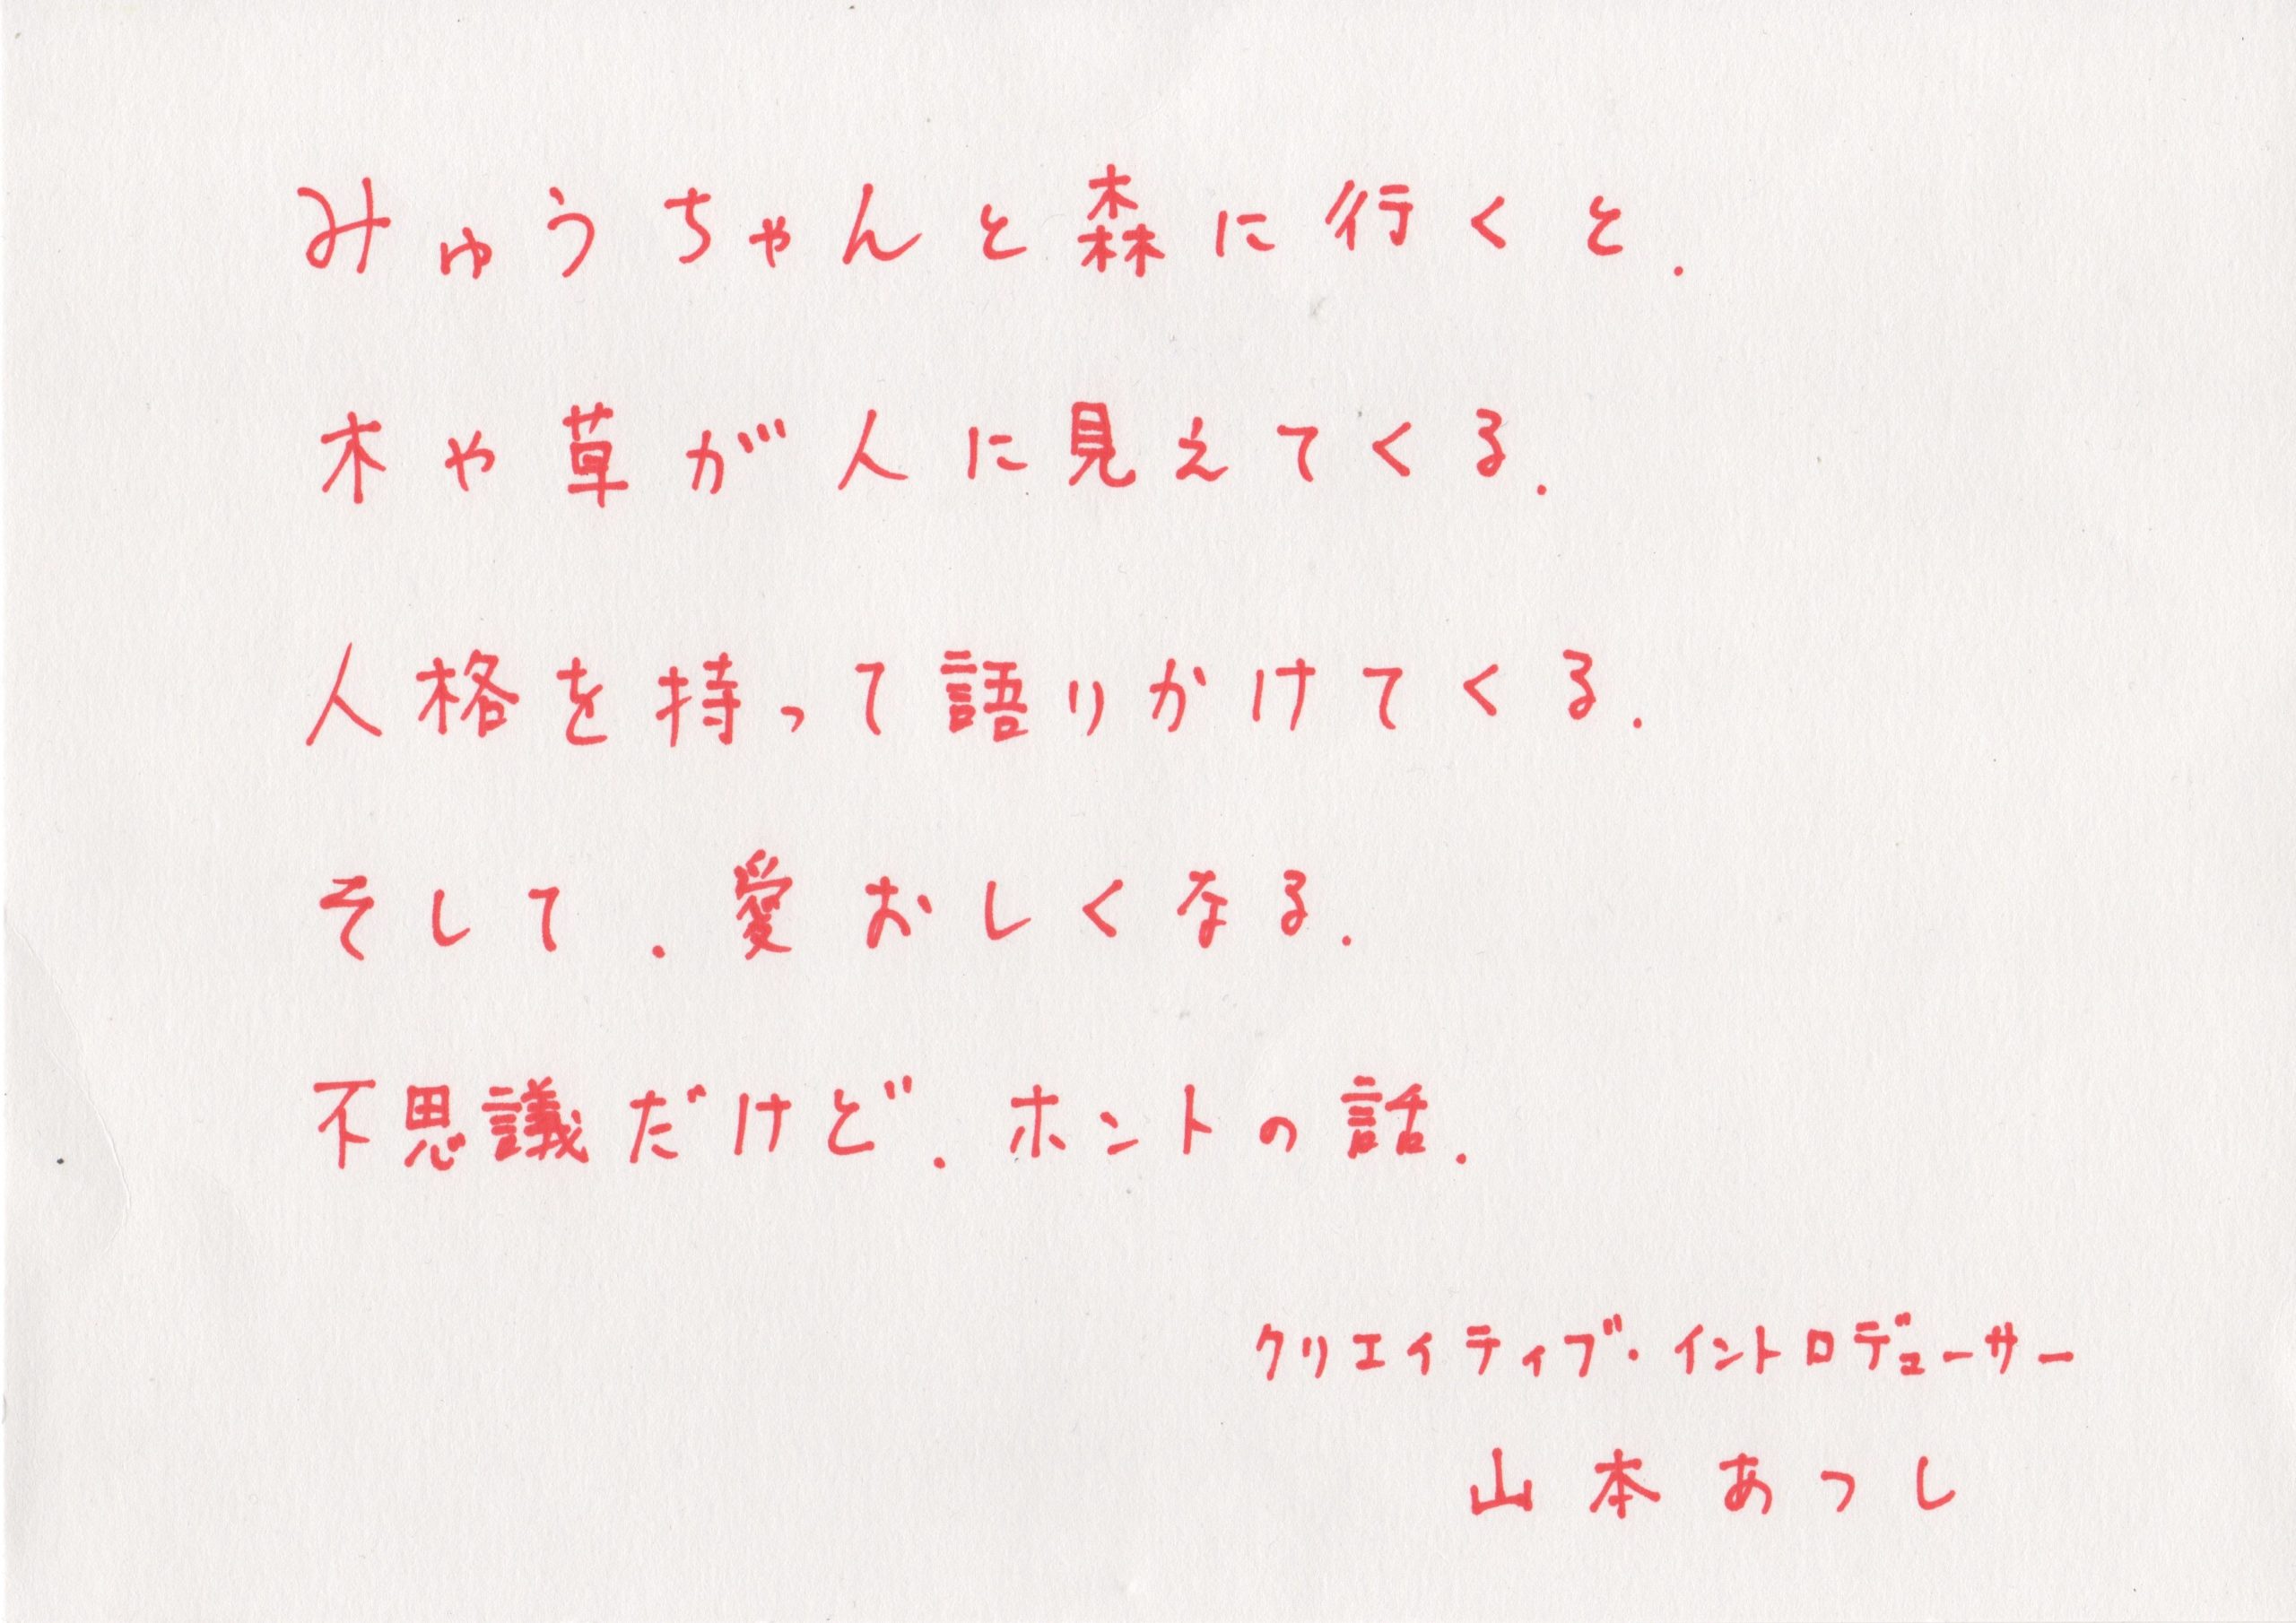 みゅうちゃんと森に行くと.
木や草が人に見えてくる.
人格を持って語りかけてくる.
そして.愛おしくなる.
不思議だけど.ホントの話.
クリエイティブ・イントロデューサー
山本あつし